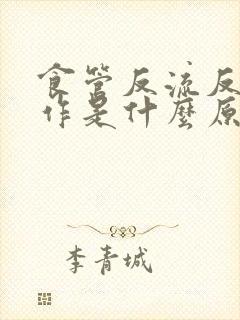 食管反流反
作是什麼原
李青城